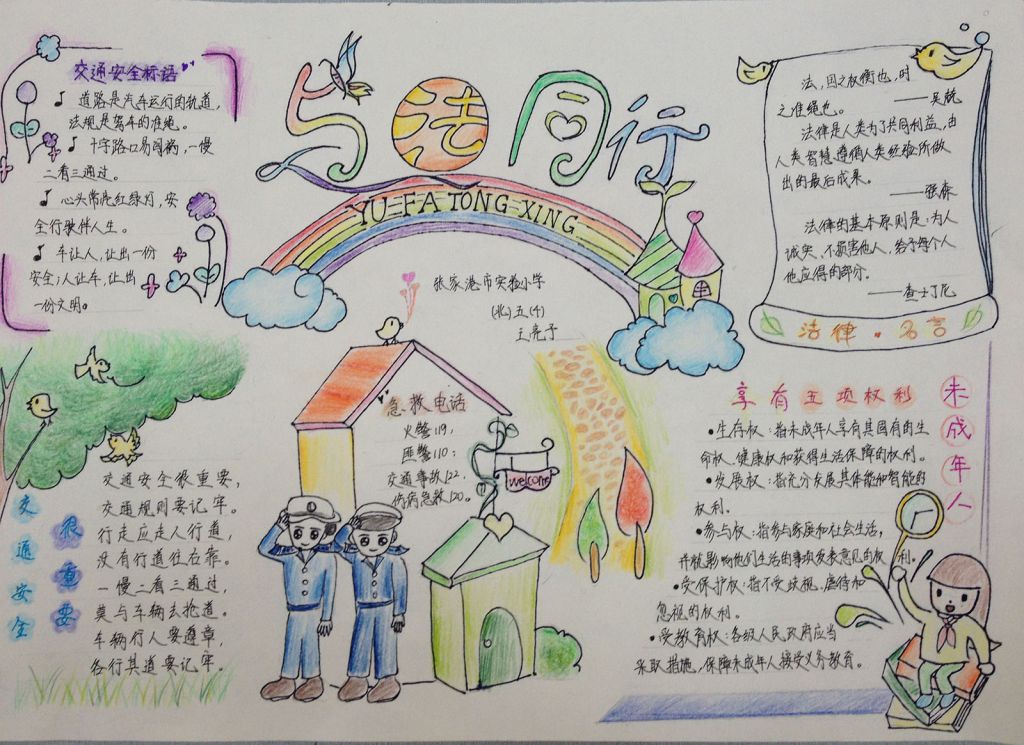 与法同行
YU FA TONG XING
张家港市实验小学
(北)五(4)
王亮予
交通安全标语
道路是汽车运行的轨道,
法规是驾车的准绳。
十字路口易闯祸,一慢
二看三通过。
心头常亮红绿灯,安
全行驶伴人生。
车让人,让出一份
安全;人让车,让出
一份文明。
法,国之权衡也,时
之准绳也。
——吴兢
法律是人类为了共同利益,由
人类智慧遵循人类经验所做
出的最后成果。
——强森
法律的基本原则是:为人
诚实,不损害他人,给予每个人
他应得的部分。
——查士丁尼
法律·名言
急救电话
火警119;
匪警110;
交通事故122;
伤病急救120。
welcome
交通安全
很重要
交通安全很重要,
交通规则要记牢。
行走应走人行道,
没有行道往右靠。
一慢二看三通过,
莫与车辆去抢道。
车辆行人要遵章,
各行其道要记牢。
未成年人
享有五项权利
生存权:指未成年人享有其固有的生
命权、健康权和获得生活保障的权利。
发展权:指充分发展其体能和智能的
权利。
参与权:指参与家庭和社会生活,
并就影响他们生活的事项发表意见的权利。
受保护权:指不受歧视、虐待和
忽视的权利。
受教育权:各级人民政府应当
采取措施,保障未成年人接受义务教育。